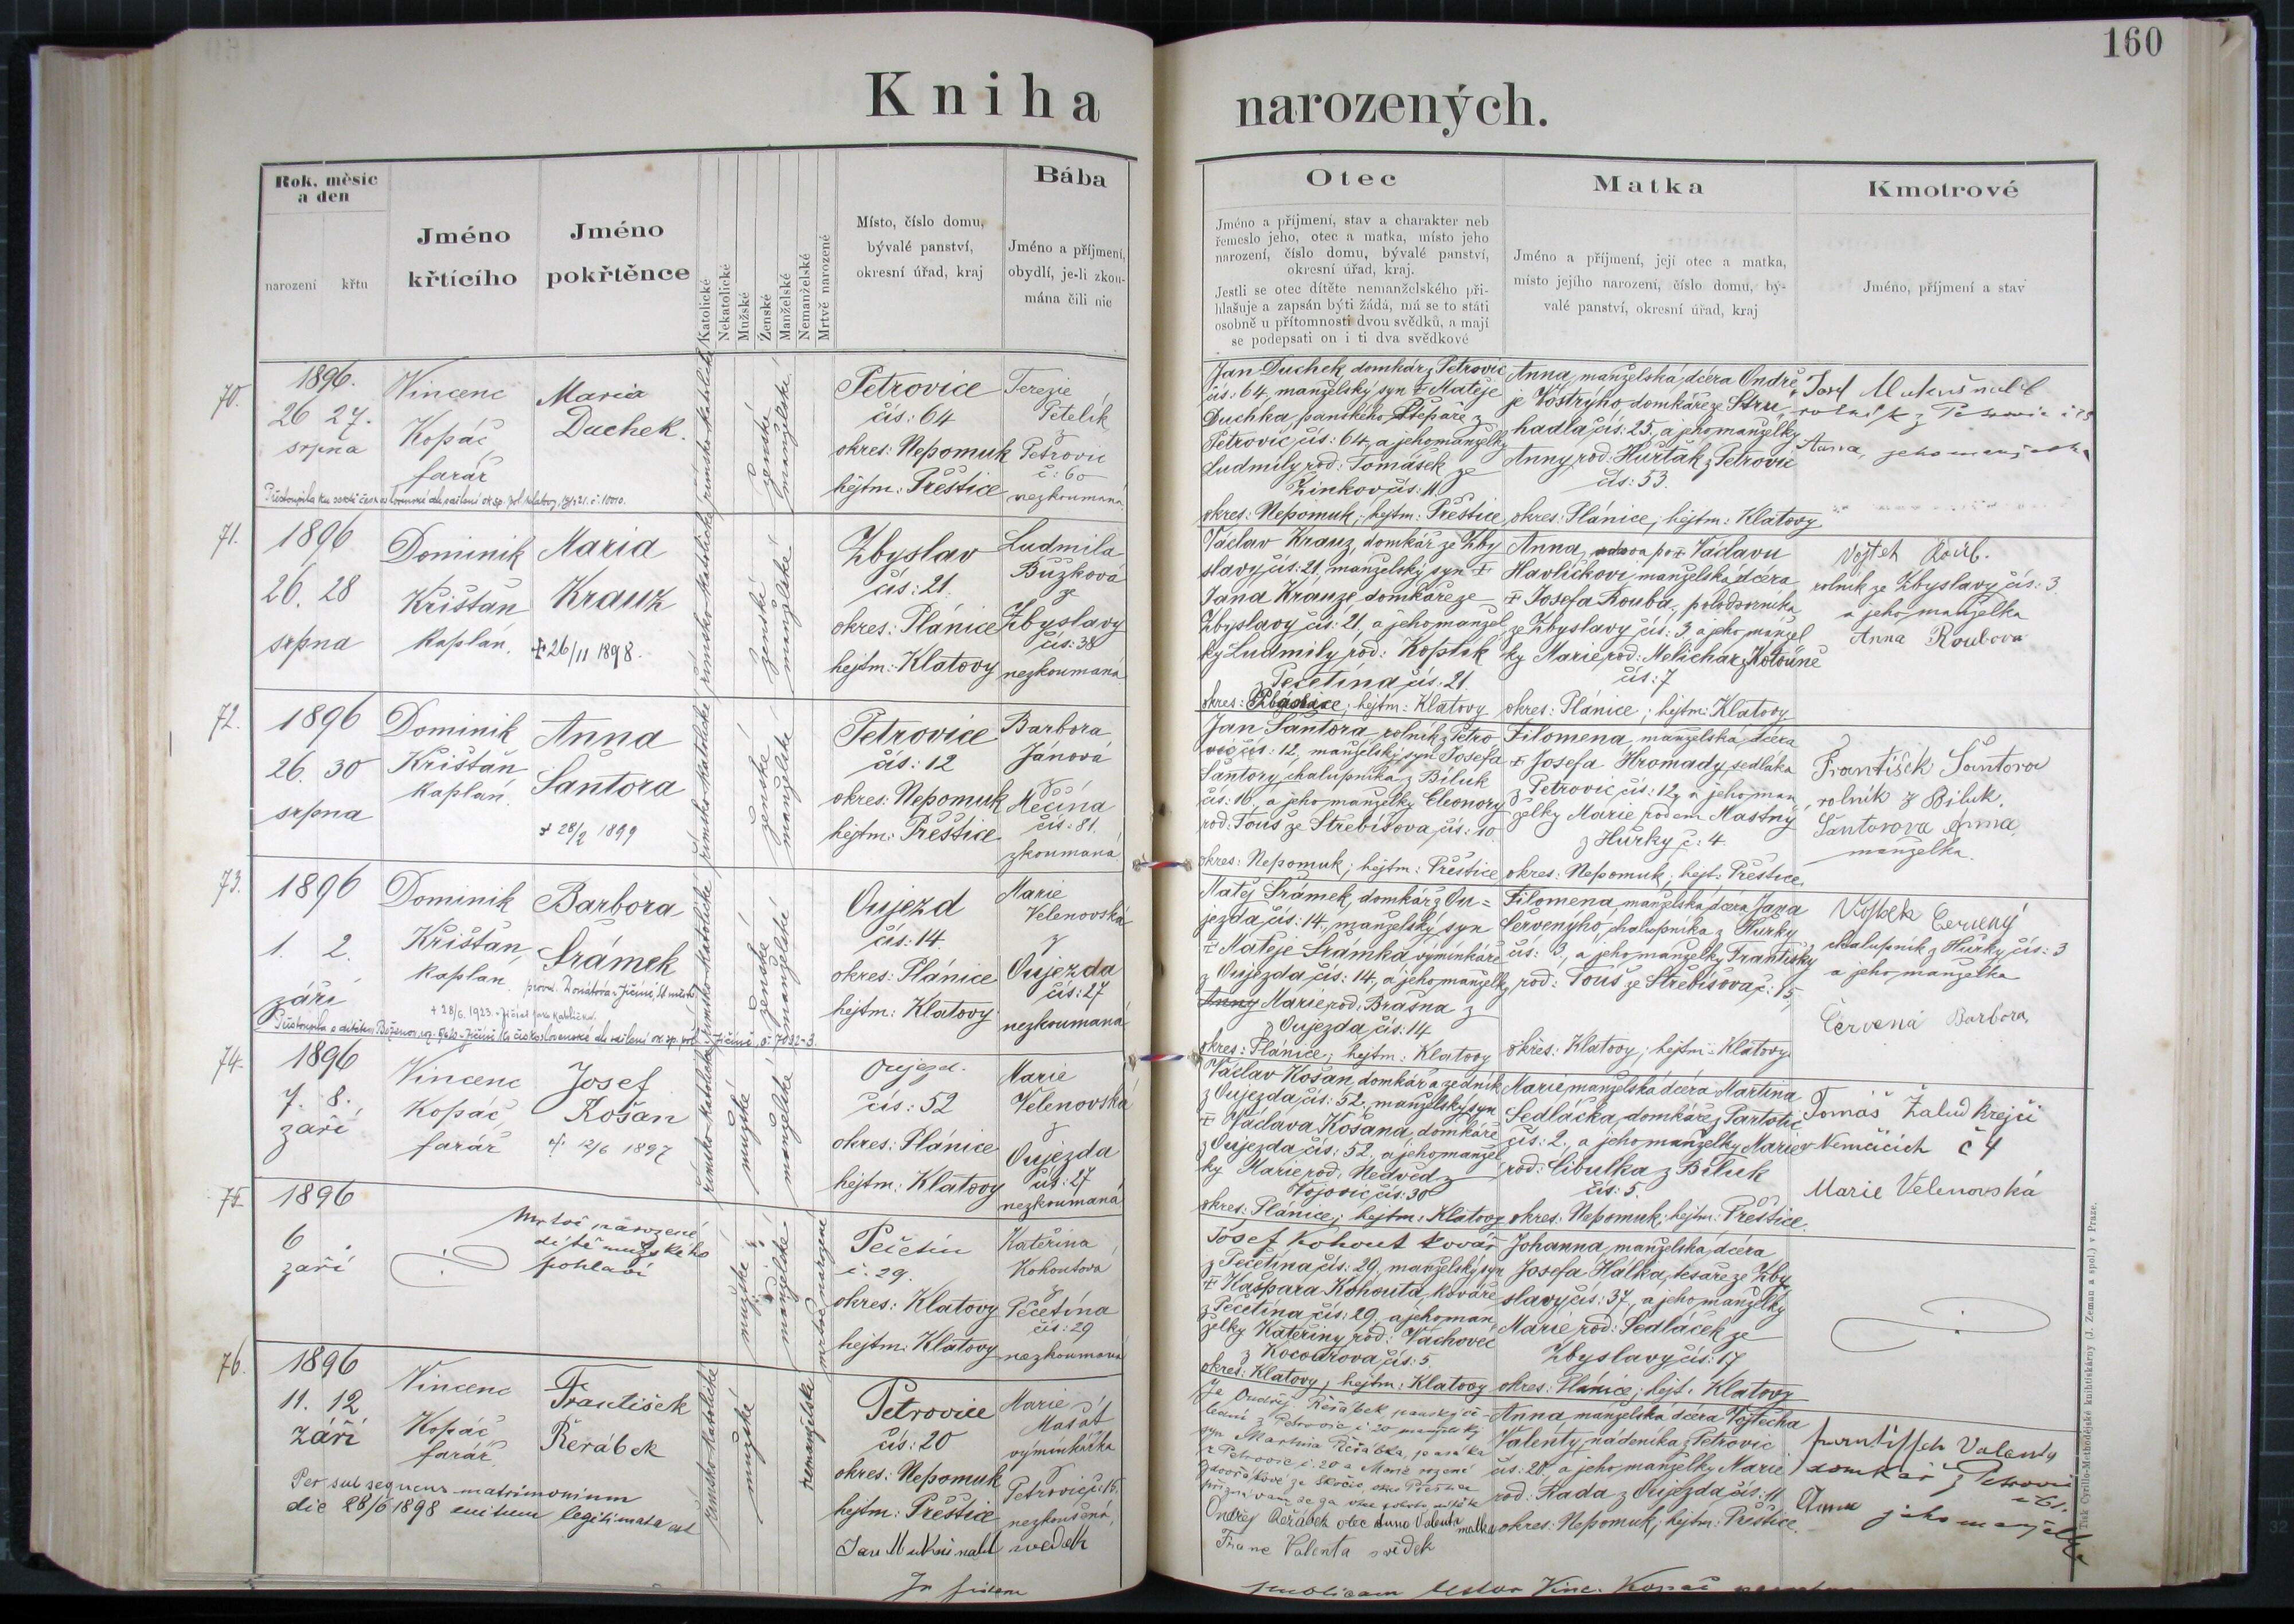 160
Kniha narozených.
Rok, měsíc
a den
narození křtu
Jméno
křtícího
Jméno
pokřtěnce
Katolické
Nekatolické
Mužské
Ženské
Manželské
Nemanželské
Mrtvě narozené
Místo, číslo domu,
bývalé panství,
okresní úřad, kraj
Bába
Jméno a příjmení,
obydlí, je-li zkou-
mána čili nic
Otec
Jméno a příjmení, stav a charakter neb
řemeslo jeho, otec a matka, místo jeho
narození, číslo domu, bývalé panství,
okresní úřad, kraj.
Jestli se otec dítěte nemanželského při-
hlašuje a zapsán býti žádá, má se to státi
osobně u přítomnosti dvou svědků, a mají
se podepsati on i ti dva svědkové
Matka
Jméno a příjmení, její otec a matka,
místo jejího narození, číslo domu, bý-
valé panství, okresní úřad, kraj
Kmotrové
Jméno, příjmení a stav
70.
1896.
26 27.
srpna
Vincenc
Kopáč
farář
Maria
Duchek.
římsko-katolické
ženské
manželské
Petrovice
čís: 64
okres: Nepomuk
hejtm: Přeštice
Terezie
Petelík
z
Petrovic
č: 60
nezkoumaná
Jan Duchek domkář z Petrovic
čís: 64, manželský syn † Matěje
Duchka, panského štěpaře z
Petrovic čís: 64, a jeho manželky
Ludmily rod: Tomášek ze
Žinkov čís: 11.
okres: Nepomuk; hejtm: Přeštice
Anna, manželská dcera Ondře
je Vostrýho, domkáře ze Stru
hadla čís: 25, a jeho manželky
Anny rod: Hurťák z Petrovic
čís: 53.
okres: Plánice; hejtm: Klatovy
rolník z
Anna, jeho manželka
71.
1896
26. 28
srpna
Dominik
Krištan
kaplan.
Maria
Krauz
† 26/11 1898.
římsko-katolické
ženské
manželské
Zbyslav
čís: 21.
okres: Plánice
hejtm: Klatovy
Ludmila
Buzková
ze
Zbyslavy
čís: 38
nezkoumaná
Václav Krauz, domkář ze Zby
slavy čís: 21, manželský syn †
Jana Krauze, domkáře ze
Zbyslavy čís: 21, a jeho manžel
ky Ludmily rod: Kopták
z Pečetína čís: 21.
okres: ; hejtm: Klatovy
Anna, vdova po † Václavu
Havlíčkovi, manželská dcera
† Josefa Rouba, polodvorníka
ze Zbyslavy čís: 3, a jeho manžel
ky Marie rod: Melichar z Kotouně
čís: 7
okres: Plánice; hejtm: Klatovy
Vojtěh Roub.
rolník ze Zbyslavy čís: 3
a jeho manželka
Anna Roubova
72.
1896
26. 30
srpna
Dominik
Krištan
kaplan.
Anna
Šantora
† 28/2 1899
římsko-katolické
ženské
manželské
Petrovice
čís: 12
okres: Nepomuk
hejtm: Přeštice
Barbora
Jánová
z
Měčína
čís: 81.
zkoumaná
Jan Šantora rolník z Petro
vic čís: 12, manželský syn Josefa
Šantory, chalupníka z Biluk
čís: 16, a jeho manželky Eleonory
rod: Touš ze Střebišova čís: 10
okres: Nepomuk; hejtm: Přeštice
Filomena, manželská dcera
† Josefa Hromady, sedláka
z Petrovic čís: 12, a jeho man
želky Marie rodem Mastný
z Hůrky č: 4.
okres: Nepomuk; hejt: Přeštice.
František Šantora
rolník z Biluk.
Šantorova Anna,
manželka.
73.
1896
1. 2.
září
Dominik
Krištan
kaplan.
Barbora
Šrámek
† 28/6. 1923.
římsko-katolické
ženské
manželské
Oujezd
čís: 14.
okres: Plánice
hejtm: Klatovy
Marie
Velenovská
z
Oujezda
čís: 27
nezkoumaná
Matěj Šrámek, domkář z Ou=
jezda čís: 14, manželský syn
† Matěje Šrámka výminkáře
z Oujezda čís: 14, a jeho manželky
Anny Marie rod: Brašna z
Oujezda čís: 14
okres: Plánice; hejtm: Klatovy
Filomena, manželská dcera Jana
Červenýho, chalupníka z Hůrky
čís: 3, a jeho manželky Františky
rod: Touš ze Střebišova č: 15,
okres: Klatovy; hejtm: Klatovy
Vojtěch Červený
chalupník z Hůrky čís: 3
a jeho manželka
Červená Barbora
74.
1896
7. 8.
září
Vincenc
Kopáč,
farář
Josef
Košan
† 12/6 1897
římsko-katolické
mužské
manželské
Oujezd.
čís: 52
okres: Plánice
hejtm: Klatovy
Marie
Velenovská
z
Oujezda
čís: 27
nezkoumaná
Václav Košan, domkář a zedník
z Oujezda čís: 52, manželský syn
† Václava Košana, domkáře
z Oujezda čís: 52, a jeho manžel
ky Marie rod: Nedvěd z
Vojovic čís: 30
okres: Plánice; hejtm: Klatovy
Marie manželská dcera Martina
Sedláčka, domkáře z Partotic
čís: 2, a jeho manželky Marie
rod: Cibulka z Biluk
čís: 5.
okres: Nepomuk; hejtm: Přeštice.
Tomáš Žalud krejčí
v Nemčicích č 4
Marie Velenovská
75.
1896
6
září
Mrtvě narozené
dítě mužského
pohlaví
mužské
manželské
mrtvě narozené
Pečetín
č. 29.
okres: Klatovy
hejtm: Klatovy
Kateřina
Kohoutová
z
Pečetína
čís: 29
nezkoumaná
Josef Kohout kovář
z Pečetína čís: 29, manželský syn
† Kašpara Kohouta, kováře
z Pečetína čís: 29, a jeho man
želky Kateřiny rod: Váchovec
z Kocourova čís: 5.
okres: Klatovy; hejtm: Klatovy
Johanna, manželská dcera
Josefa Hálka, tesaře ze Zby
slavy čís: 37, a jeho manželky
Marie rod: Sedláček ze
Zbyslavy čís: 17
okres: Plánice; hejt: Klatovy
76.
1896
11. 12
září
Vincenc
Kopáč
farář
František
Řeřábek
Per subsequens matrimonium
die 28/6 1898 legitimata est
římsko-katolické
mužské
nemanželské
Petrovice
čís: 20
okres: Nepomuk
hejtm: Přeštice
Marie
Mašát
výminkářka
z
Petrovic č: 15.
nezkoušená,
svědek
Ondřej Řeřábek
syn Martina Řeřábka,
z Petrovic č. 20 a Marie rozené
Ondřej Řeřábek otec Anna Valenta matka
Franc Valenta svědek
Anna, manželská dcera Vojtěcha
Valenty, nádeníka z Petrovic
čís: 20, a jeho manželky Marie
rod: Rada z Oujezda čís: 11
okres: Nepomuk; hejtm: Přeštice.
Valenty
domkář z Petrovic
Anna jeho manželka
In fidem
testor Vinc. Kopáč
Tisk Cyrillo-Methodějské knihtiskárny (J. Zeman a spol.) v Praze.